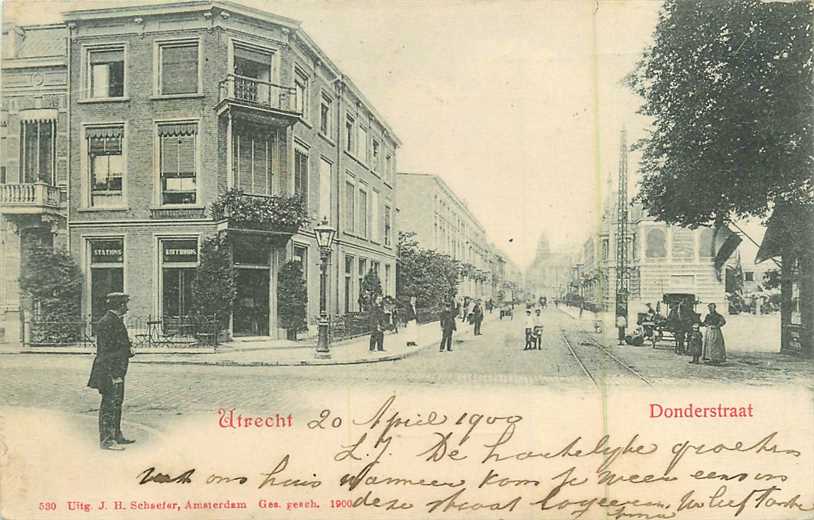 STATIONS
KOFFIEHUIS
Utrecht
20 April 1900
Donderstraat
L. J. De hartelijke groeten
uit ons huis wanneer kom je weer eens in
deze straat logeeren. Uw liefh. tante
530 Uitg. J. H. Schaefer, Amsterdam Ges. gesch. 1900